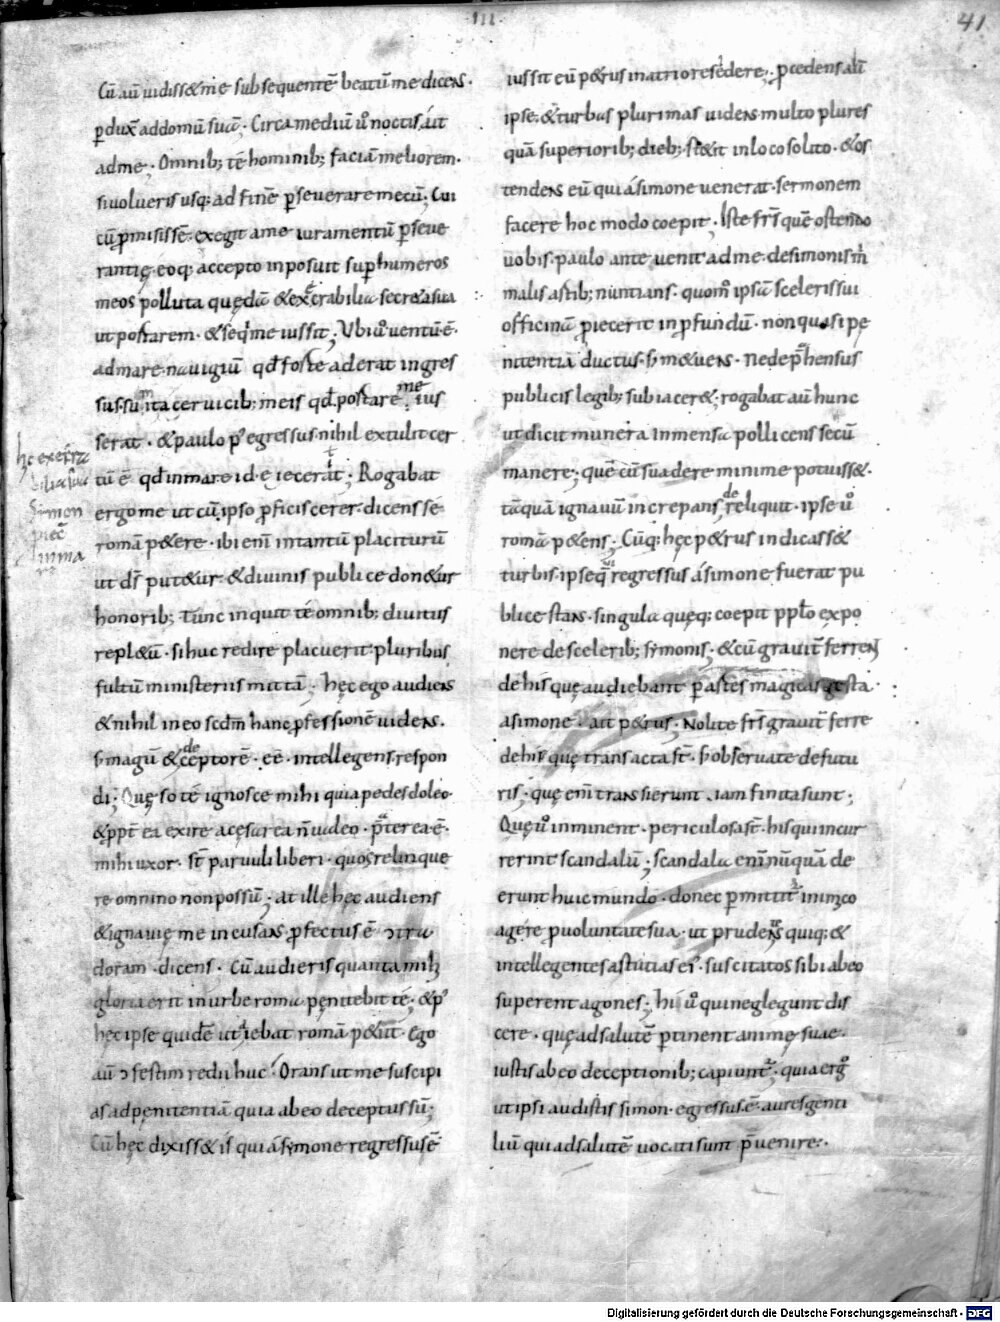 ·III·
41
Cū aū uidiss&me subsequentē beatū me dicens·
pduxˉ ad domū suā· Circa mediū ů noctis, ait
ad me; Omnib; té hominib; faciā meliorem·
si uolueris usq; ad finē pseuerare mecū; Cui
cū pmisissē· exegit a me iuramentū pseue
rantię· eoq; accepto inposuit sup humeros
meos polluta quędā & execrabilia secreta sua
ut portarem· & seq me iussit; Vbi ů uentū ē·
ad mare· nauigiū qđ forte aderat ingres
sus· sumit a ceruicib; meis qđ portare me ius
serat· & paulo p egressus· nihil extulit cer
tū ē qđ in mare id· eiecerit; Rogabat
ergo me ut cū ipso pficiscerer· dicens sé
romā p&ere· ibi enī intantū placiturū
ut dī put&ur· & diuinis publice don&ur
honorib; Tunc inquit té omnib; diuitiis
repl&ū· si huc redire placuerit· pluribus
fultū ministeriis mittā; hęc ego audiens
& nihil in eo scdm hanc pfessionē uidens·
s magū & deceptorē· eē· intellegens· respon
di; Quęso té ignosce mihi quia pedes doleo·
& ppt ea exire a cęsarea ñ ualeo· pterea ē·
mihi uxor· sт paruuli liberi· quos relinque
re omnino non possū; at ille hęc audiens
& ignauię me incusans· pfectus ē ɔtra
doram· dicens· Cū audieris quanta mihi
gloria erit in urbe roma· penitebit té; & p
hęc ipse quidē ut aiebat romā p&iit· Ego
aū ɔfestim redii huc· Orans ut me suscipi
as ad penitentiā quia ab eo deceptus sū;
Cū hęc dixiss& is qui á symone regressus ē
hęc exe
Simon
piec
in ma
iussit eū p&rus in atrio residere; pcedens aū
ipse· & turbas plurimas uidens multo plures
quā superiorib; dieb; st&it in loco solito· & os
tendens eū qui á simone uenerat· sermonem
facere hoc modo coepit· Iste frs quē ostendo
uobis· paulo ante uenit ad me· de simonis m
malis artib; nuntians· quom ipsā sceleris sui
officinā piecerit in pfundū· non quasi pę
nitentiā ductus· s m&uens· ne depˉhensus
publicis legib; subiacer&; rogabat aū hunc
ut dicit munera inmensa pollicens secū
manere; quē cū suadere minime potuiss&·
tāquā ignauū increpans· dereliquit· ipse ů
romā p&ens; Cūq; hęc p&rus indicass&
turbis· ipse q regressus á simone fuerat pu
blice stans· singula quęq; coepit pplo expo
nere de scelerib; symonis· & cū grauit ferrent
de his quę audiebant p artes magicas gesta·
a simone· ait p&rus; Nolite frs grauit ferre
de his quę transacta sт· s obseruate de futu
ris; quę enī transierunt· iam finita sunt;
Quę ů inminent· periculosa sт· his qui incur
rerint scandalū; scandala enī nūquā de
erunt huic mundo· donec pmittit inimico
agere p uoluntate sua· ut prudentes quiq; &
intellegentes astutias ei· suscitatos sibi ab eo
superent agones; hi ů qui neglegunt dis
cere· quę ad salutē ptinent animę suae·
iustis ab eo deceptionib; capiunt· quia erg
ut ipsi audistis simon· egressus· ē· aures genti
liū qui ad salutē uocati sunt pˉuenire;·
Digitalisierung gefördert durch die Deutsche Forschungsgemeinschaft - DFG